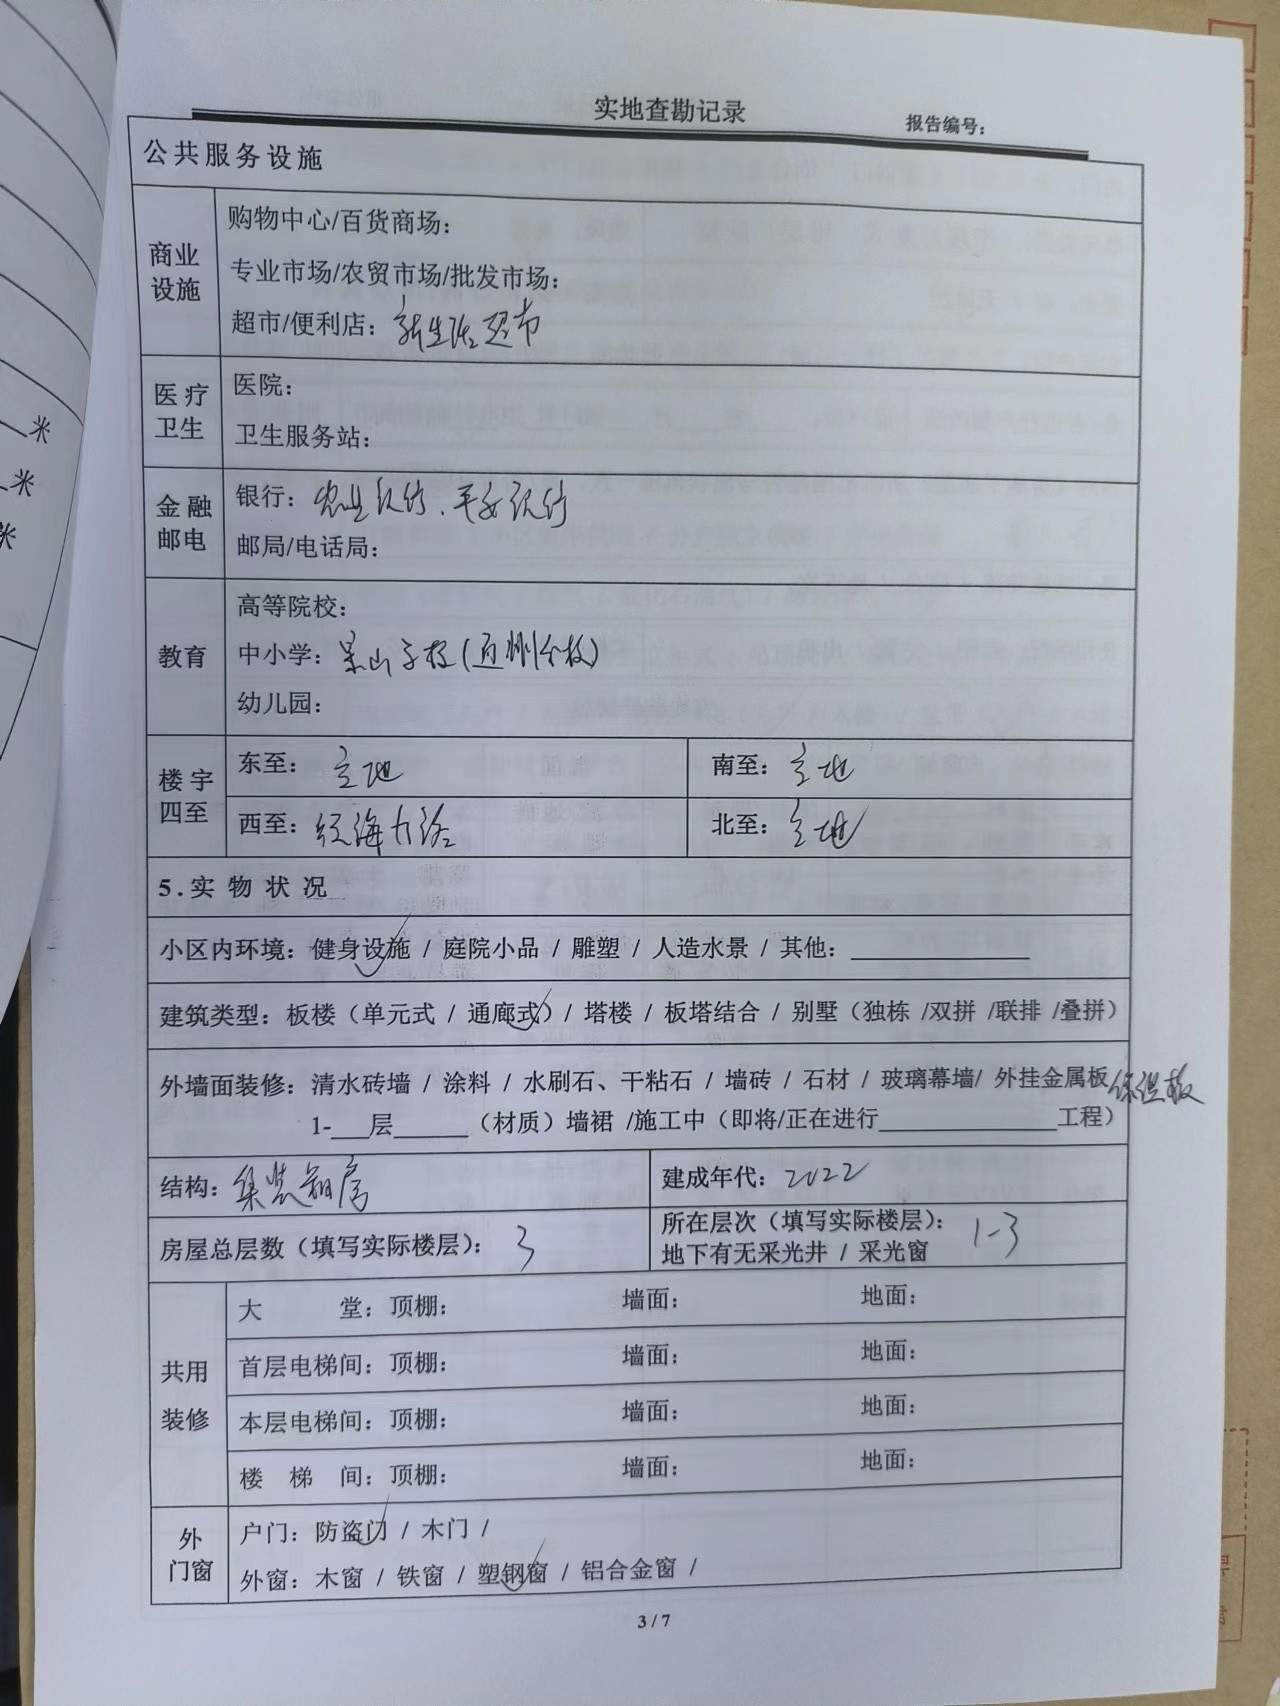 米
米
米
实地查勘记录
报告编号：
公共服务设施
商业设施
购物中心/百货商场：
专业市场/农贸市场/批发市场：
超市/便利店：新生活超市
医疗卫生
医院：
卫生服务站：
金融邮电
银行：农业银行、平安银行
邮局/电话局：
教育
高等院校：
中小学：景山学校(通州分校)
幼儿园：
楼宇四至
东至：空地
南至：空地
西至：经海六路
北至：空地
5.实物状况
小区内环境：健身设施 / 庭院小品 / 雕塑 / 人造水景 / 其他：
建筑类型：板楼（单元式 / 通廊式）/ 塔楼 / 板塔结合 / 别墅（独栋 /双拼 /联排 /叠拼）
外墙面装修：清水砖墙 / 涂料 / 水刷石、干粘石 / 墙砖 / 石材 / 玻璃幕墙/ 外挂金属板 保温板
1-___层______（材质）墙裙 /施工中（即将/正在进行______________工程）
结构：集装箱房
建成年代：2022
房屋总层数（填写实际楼层）：3
所在层次（填写实际楼层）：1-3
地下有无采光井 / 采光窗
共用装修
大堂：顶棚： 墙面： 地面：
首层电梯间：顶棚： 墙面： 地面：
本层电梯间：顶棚： 墙面： 地面：
楼梯间：顶棚： 墙面： 地面：
外门窗
户门：防盗门 / 木门 /
外窗：木窗 / 铁窗 / 塑钢窗 / 铝合金窗 /
3 / 7